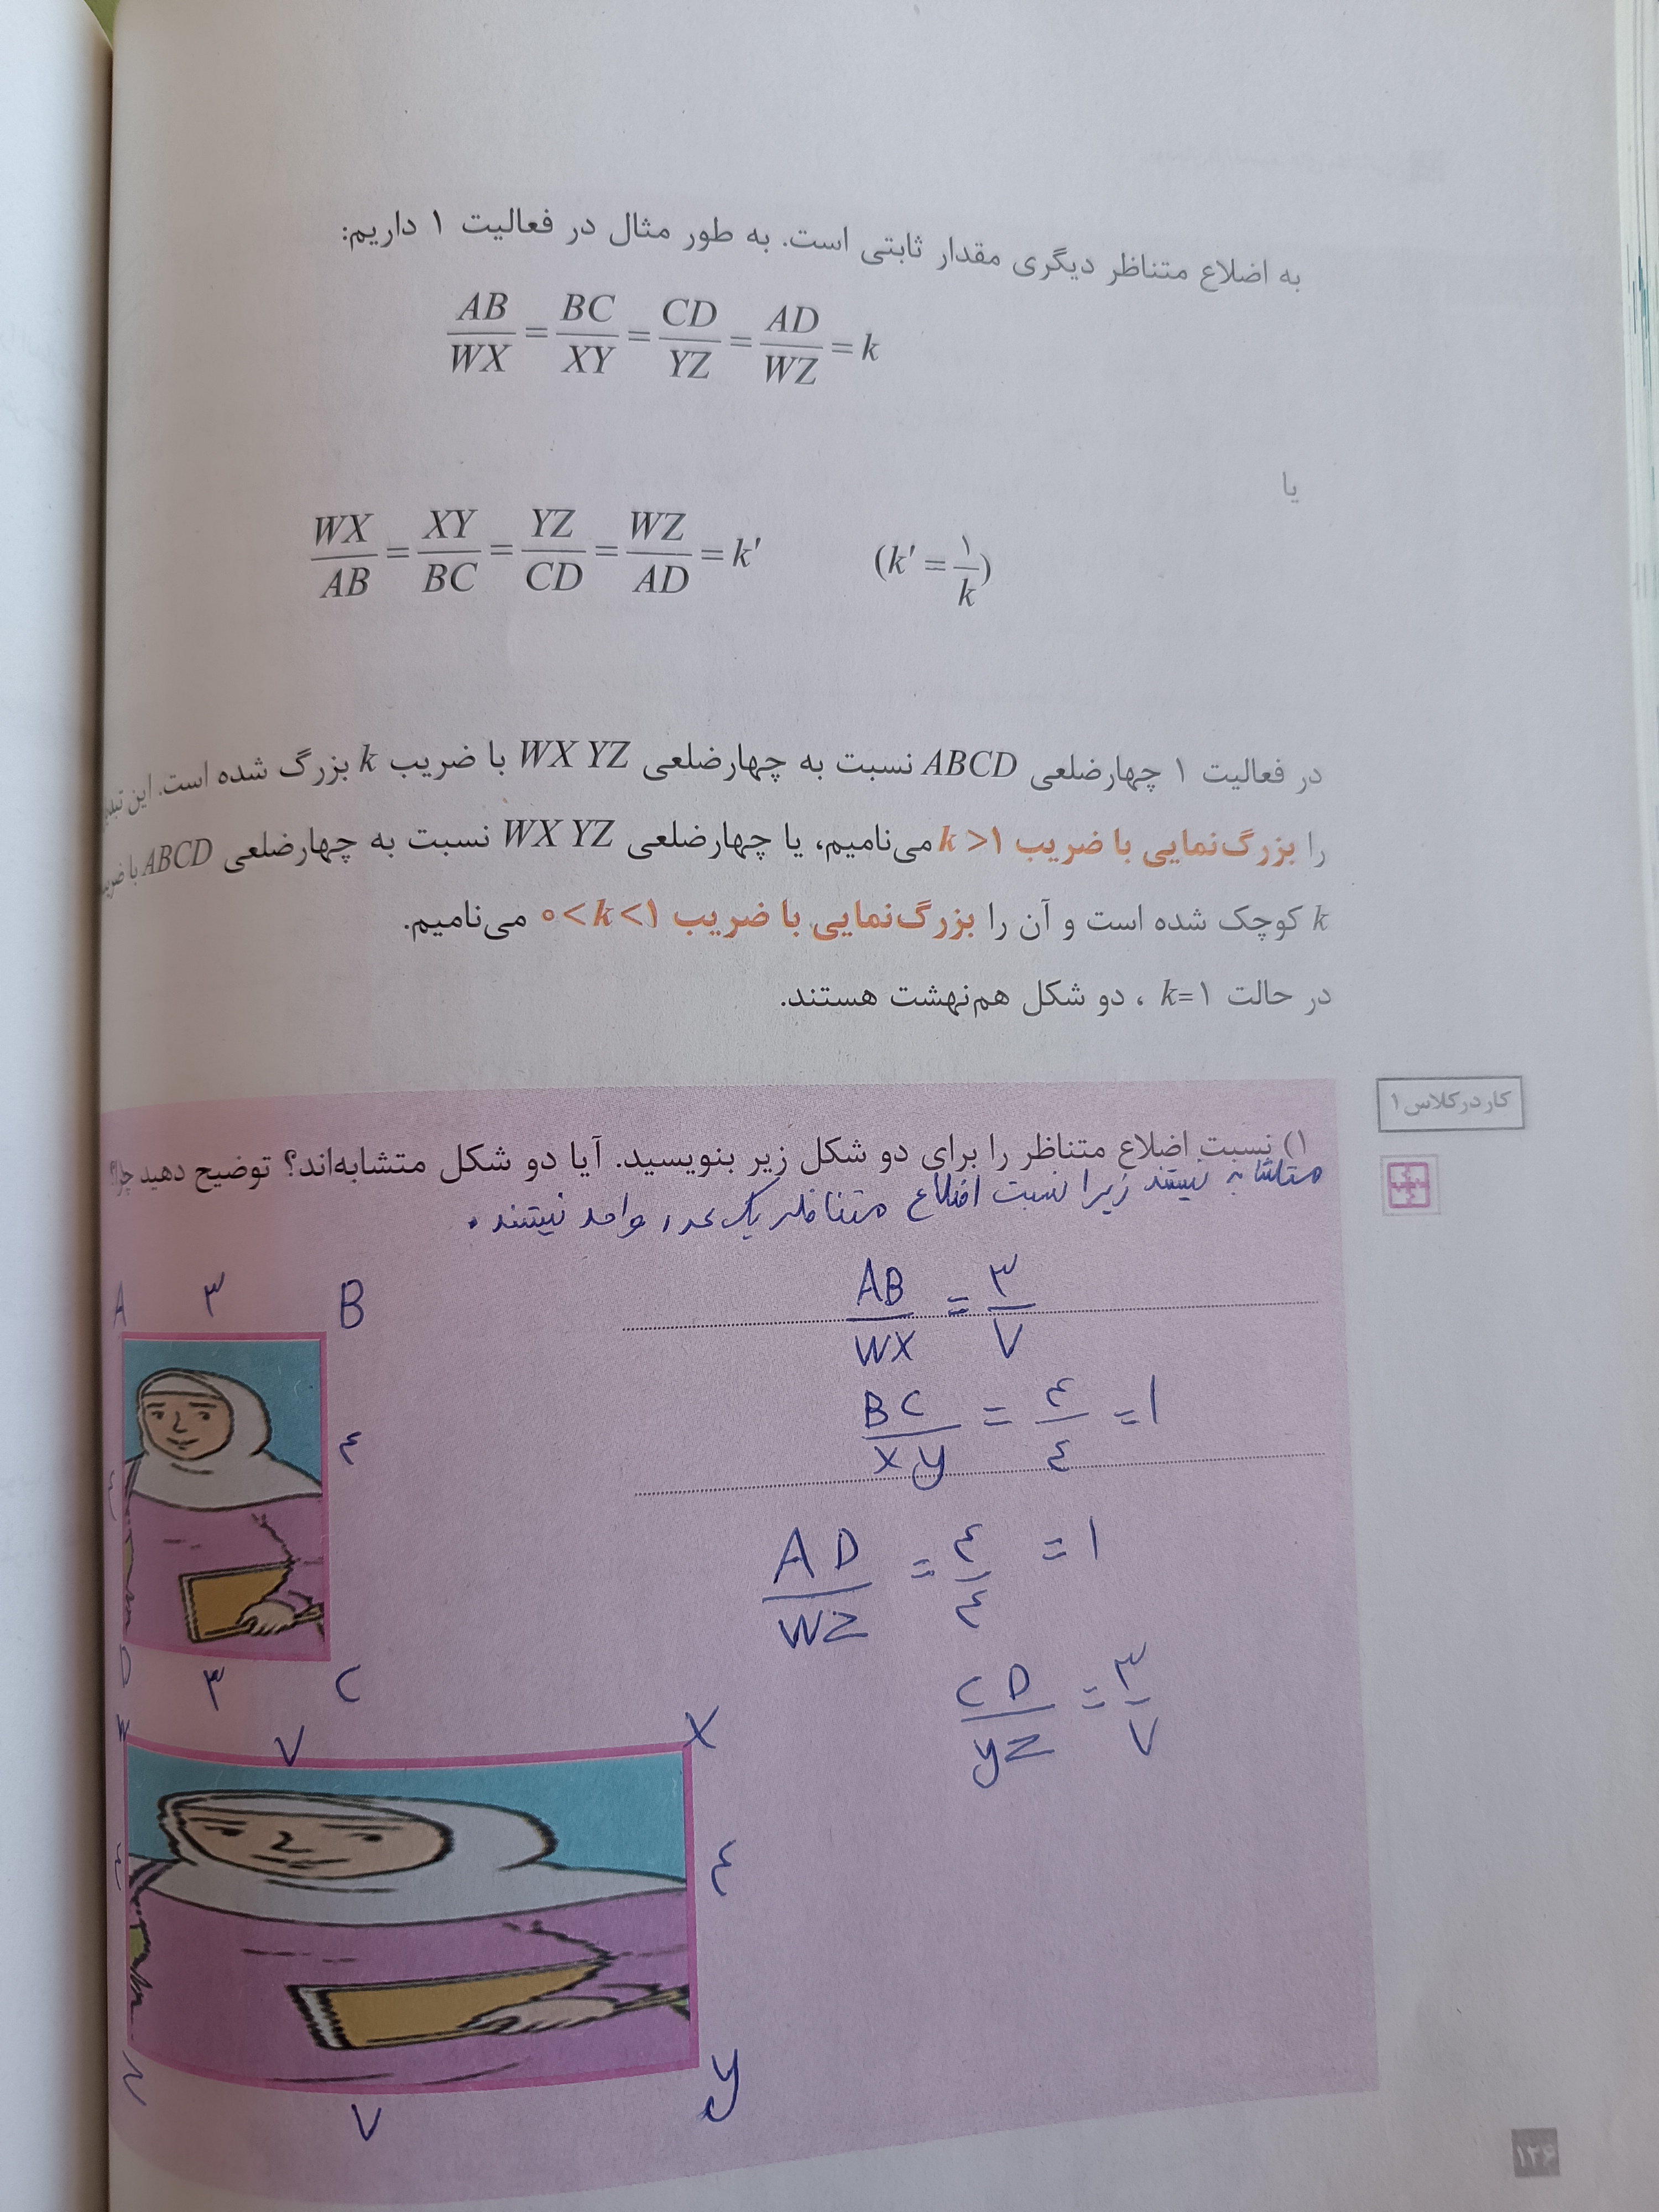 به اضلاع متناظر دیگری مقدار ثابتی است. به طور مثال در فعالیت ۱ داریم:
AB/WX = BC/XY = CD/YZ = AD/WZ = k
یا
WX/AB = XY/BC = YZ/CD = WZ/AD = k' (k' = ۱/k)
در فعالیت ۱ چهارضلعی ABCD نسبت به چهارضلعی WX YZ با ضریب k بزرگ شده است. این
را بزرگ‌نمایی با ضریب k >۱ می‌نامیم، یا چهارضلعی WX YZ نسبت به چهارضلعی ABCD با
k کوچک شده است و آن را بزرگ‌نمایی با ضریب ۰<k<۱ می‌نامیم.
در حالت k=۱ ، دو شکل هم‌نهشت هستند.
کار در کلاس ۱
۱) نسبت اضلاع متناظر را برای دو شکل زیر بنویسید. آیا دو شکل متشابه‌اند؟ توضیح دهید چرا؟
متشابه نیستند زیرا نسبت اضلاع متناظر یک عدد واحد نیستند.
A ۳ B
AB/WX = ۳/۷
BC/XY = ۴/۴ = ۱
۴
AD/WZ = ۴/۴ = ۱
D ۳ C
CD/YZ = ۳/۷
W ۷ X
۴
۷ Y
۱۲۶